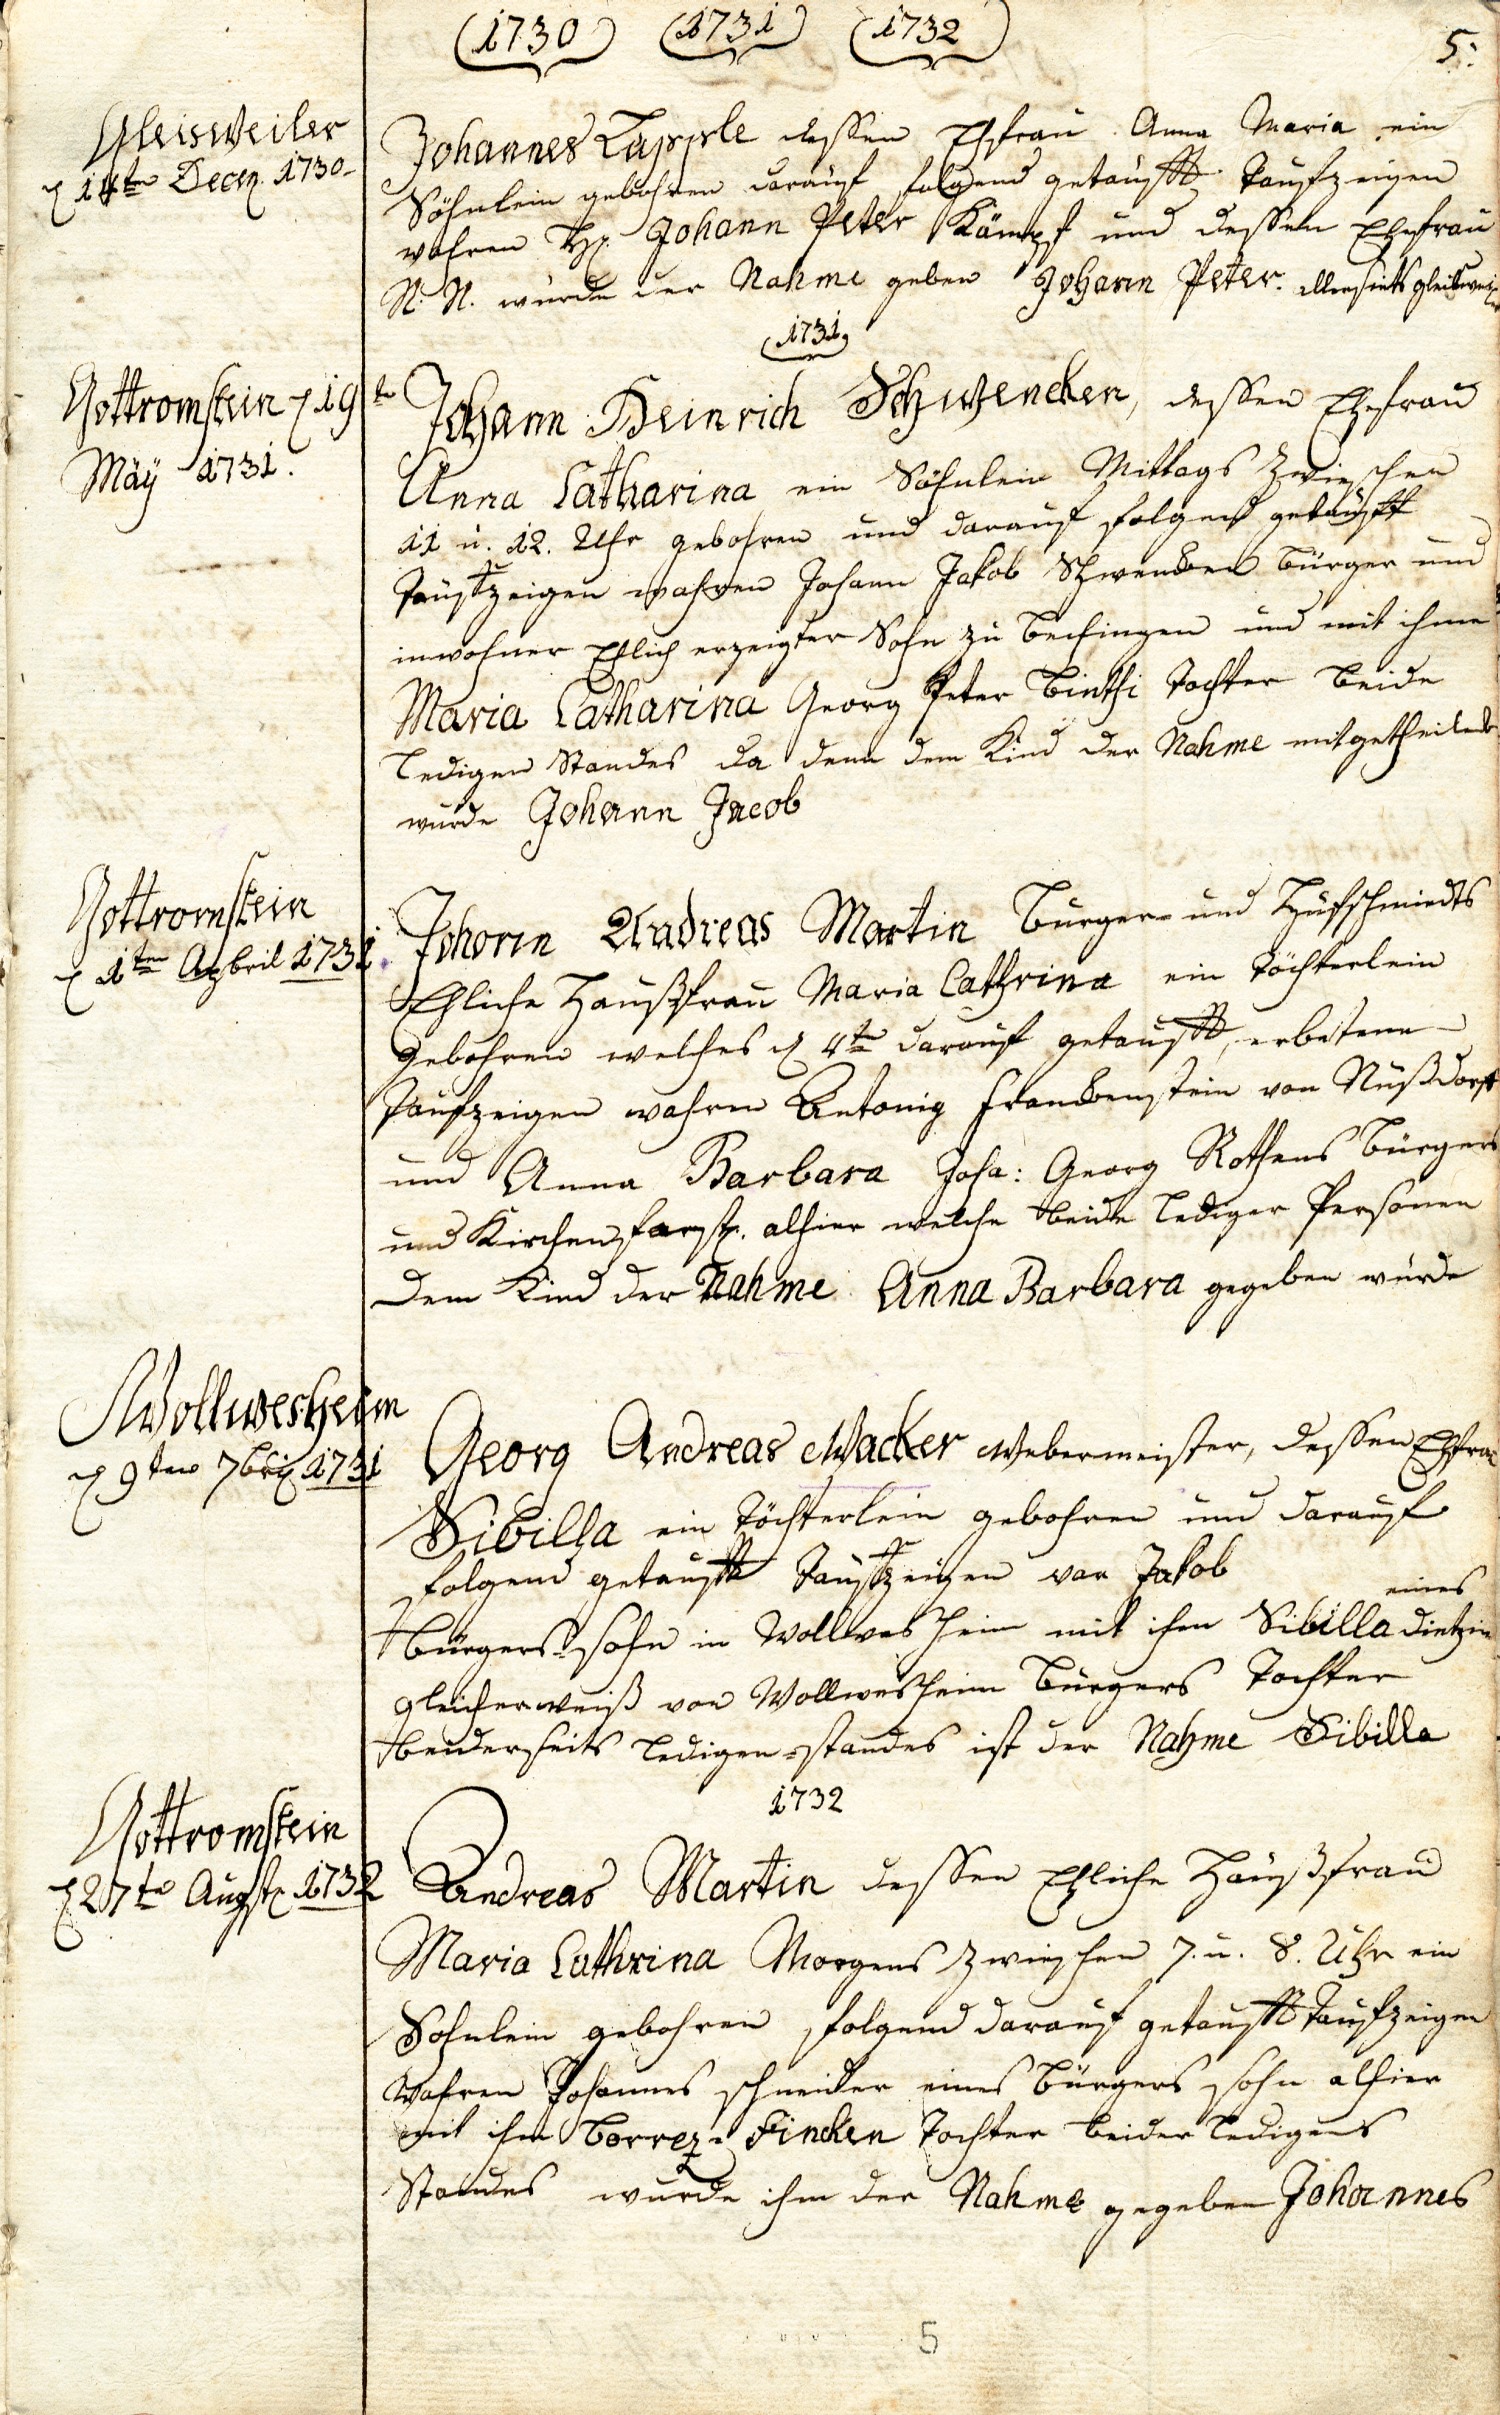 1730 1731 1732
5.
Gleisweiler
d 14ten Decem. 1730
Johannes Lapple dessen Ehfrau Anna Maria ein
Söhnlein gebohren darauf folgend getaufft Taufzeigen
wahren H. Johann Peter Kämpf und dessen Ehefrau
N. N. wurde der Nahme geben Johann Peter. allerseits
1731
Gottromstein d 19ten
Mäÿ 1731.
Johann Heinrich Schwencken, dessen Ehefrau
Anna Catharina ein Söhnlein Mittags Zwischen
11 u. 12. Uhr gebohren und darauf folgend getaufft
Taufzeigen wahren Johann Jakob Schwencken bürger und
inwohner Ehlich erzeigter Sohn zu und mit ihme
Maria Catharina Georg Peter Tochter beide
Ledigen Standes da denn dem Kind der Nahme mitgetheilet
wurde Johann Jacob
Gottromstein
d 1ten Apbril 1731
Johann Andreas Martin Burger- und Hufschmiedts
Ehliche Haußfrau Maria Cathrina ein Töchterlein
gebohren welches d 4te darauf getaufft, erbetene
Taufzeigen wahren Antonig Franckenstein von Nußdorff
und Anna Barbara Joha: Georg Rothens bürgers
und Kirchen alhier welche beide Lediger Personen
dem Kind der Nahme Anna Barbara gegeben wurde
Wollwesheim
d 9ten 7bris 1731
Georg Andreas Wacker Webermeister, dessen Ehfrau
Sibilla ein Töchterlein gebohren und darauf
folgend getaufft Taufzeigen war Jakob
eines
bürgers sohn in Wollwesheim mit ihm Sibilla Dietzin
gleicherweiß von Wollwesheim bürgers Tochter
beiderseits Ledigen-standes ist der Nahme Sibilla
1732
Gottromstein
d 27te Augst. 1732
Andreas Martin dessen Ehliche Haußfrau
Maria Cathrina Morgens Zwischen 7. u. 8. Uhr ein
Sohnlein gebohren folgend darauf getaufft Taufzeigen
Wahren Johannes schneider eines bürgers sohn alhier
mit ihm Fincken Tochter beider Ledigens
Standes wurde ihm der Nahme gegeben Johannes
5